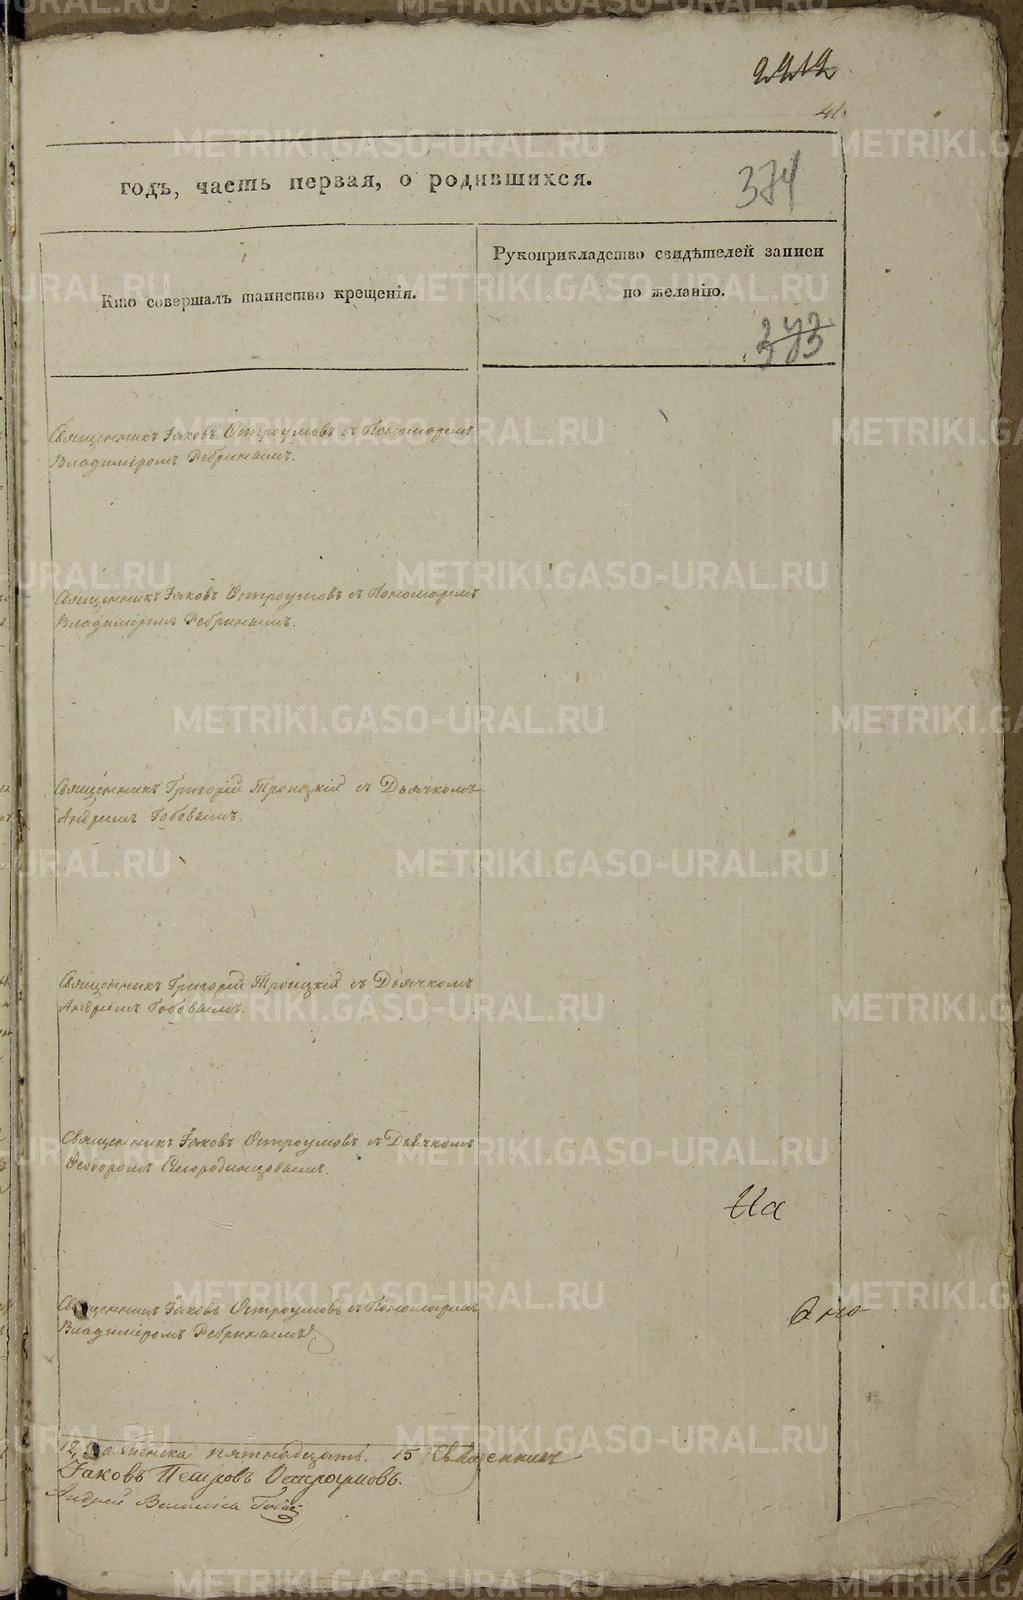 2212
41.
годъ, часть первая, о родившихся.
374
Кто совершалъ таинство крещенія.
Рукоприкладство свидѣтелей записи
по желанію.
373
Священникъ Іаковъ Остроумовъ съ Пономаремъ
Владиміромъ Ребринымъ.
Священникъ Іаковъ Остроумовъ съ Пономаремъ
Владиміромъ Ребринымъ.
Священникъ Григорій Троицкій съ Дьячкомъ
Андреемъ Гобовымъ.
Священникъ Григорій Троицкій съ Дьячкомъ
Андреемъ Гобовымъ.
Священникъ Іаковъ Остроумовъ съ Дьячкомъ
Ѳеодоромъ Смородинцовымъ.
На
Священникъ Іаковъ Остроумовъ съ Пономаремъ
Владиміромъ Ребринымъ.
12, женска пятнадцать. 15 Священникъ
Іаковъ Петровъ Остроумовъ.
Андрей
METRIKI.GASO-URAL.RU